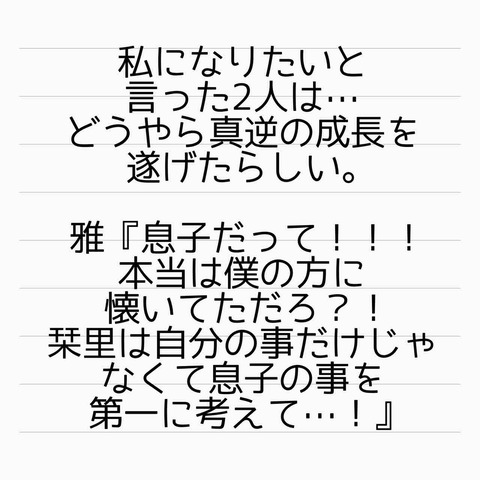 私になりたいと
言った2人は…
どうやら真逆の成長を
遂げたらしい。
雅『息子だって！！！
本当は僕の方に
懐いてただろ？！
栞里は自分の事だけじゃ
なくて息子の事を
第一に考えて…！』